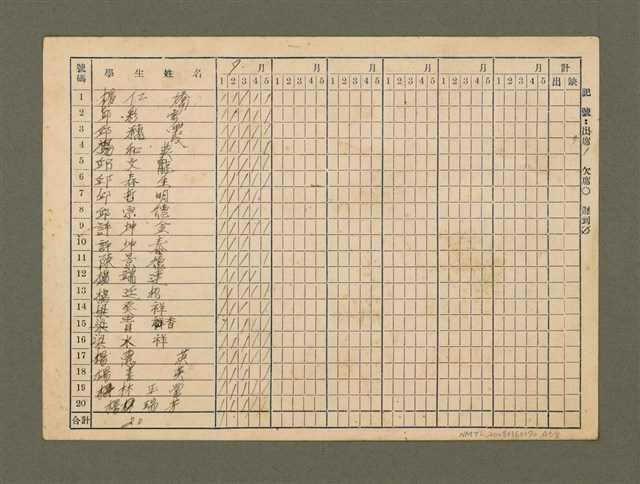 號碼 學生姓名 9月 月 月 月 月 月 計
1 2 3 4 5 1 2 3 4 5 1 2 3 4 5 1 2 3 4 5 1 2 3 4 5 1 2 3 4 5 出 缺
1 楊仁
2 邱彩雲
3 邱穗霞
4 楊和英
5 邱文龍
6 邱春生
7 邱哲明
8 邱宗德
9 許坤金
10 許坤泰
11 陳景德
12 楊瑞達
13 楊
14 梁癸祥
15 梁貴香
16 梁水祥
17 楊惠英
18 楊素英
19 林正豐
20 楊
合計 20
記號：出席/ 欠席○ 遲到
NMTL